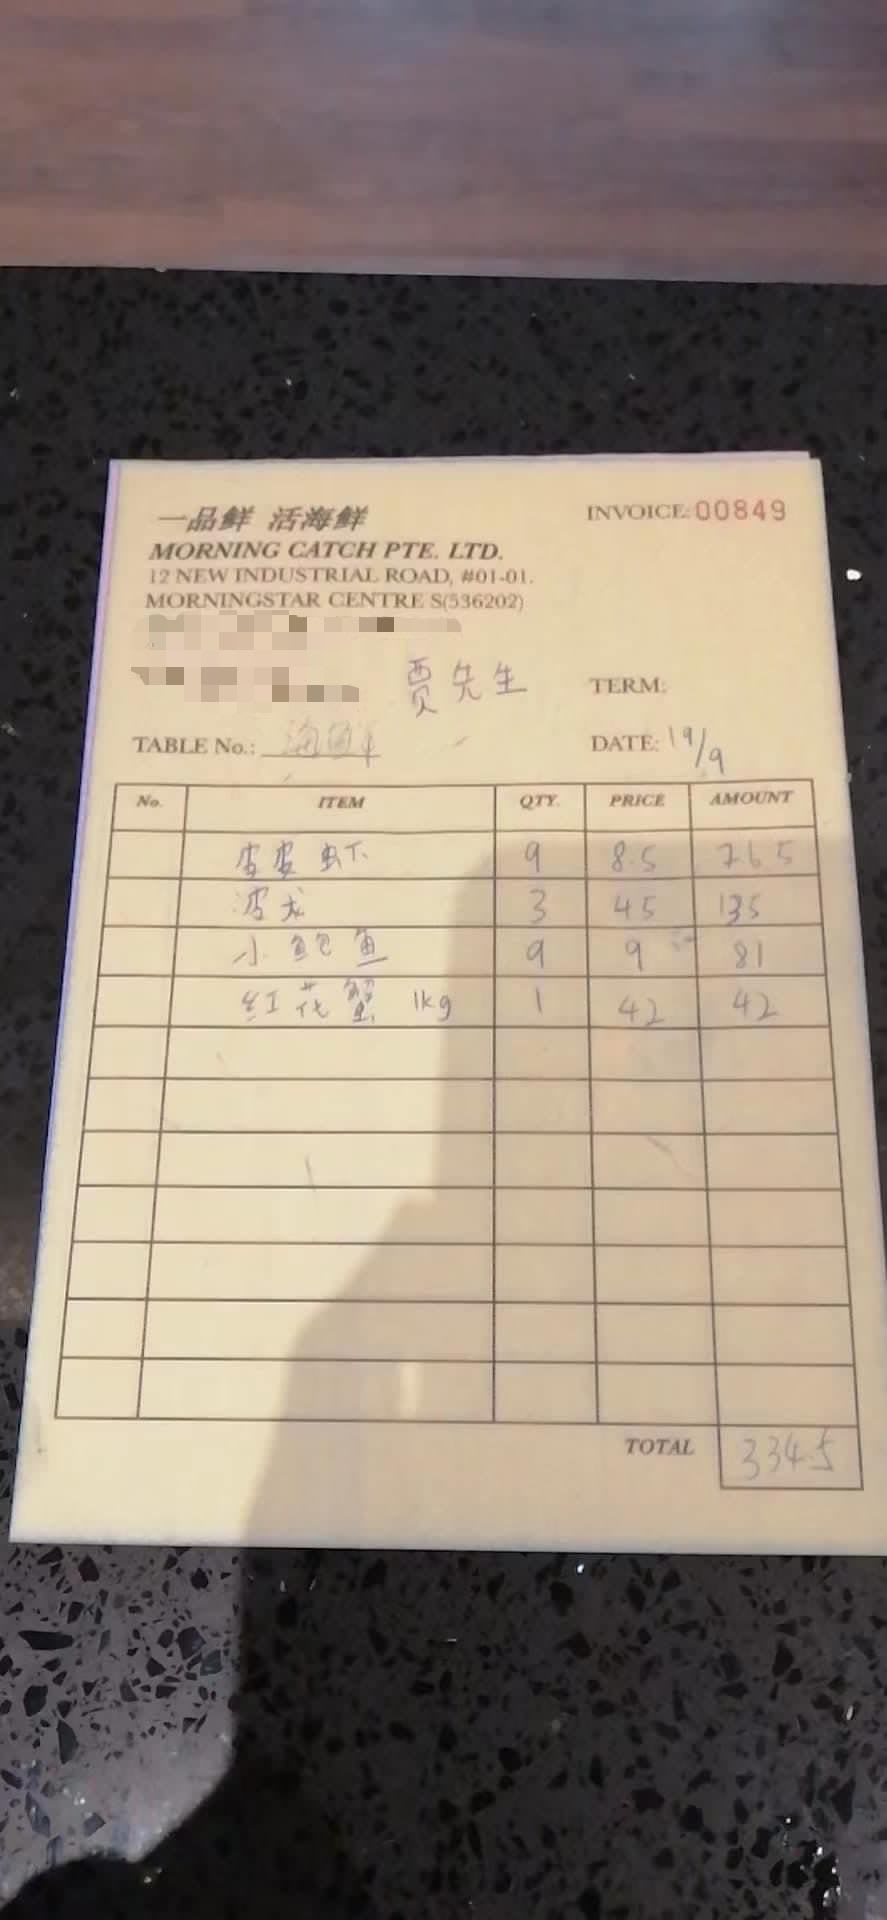 一品鲜 活海鲜
INVOICE: 00849
MORNING CATCH PTE. LTD.
12 NEW INDUSTRIAL ROAD, #01-01.
MORNINGSTAR CENTRE S(536202)
贾先生 TERM:
TABLE No.: 海鲜 DATE: 19/9
No. ITEM QTY. PRICE AMOUNT
皮皮虾 9 8.5 76.5
波龙 3 45 135
小鲍鱼 9 9 81
红花蟹 1kg 1 42 42
TOTAL 334.5